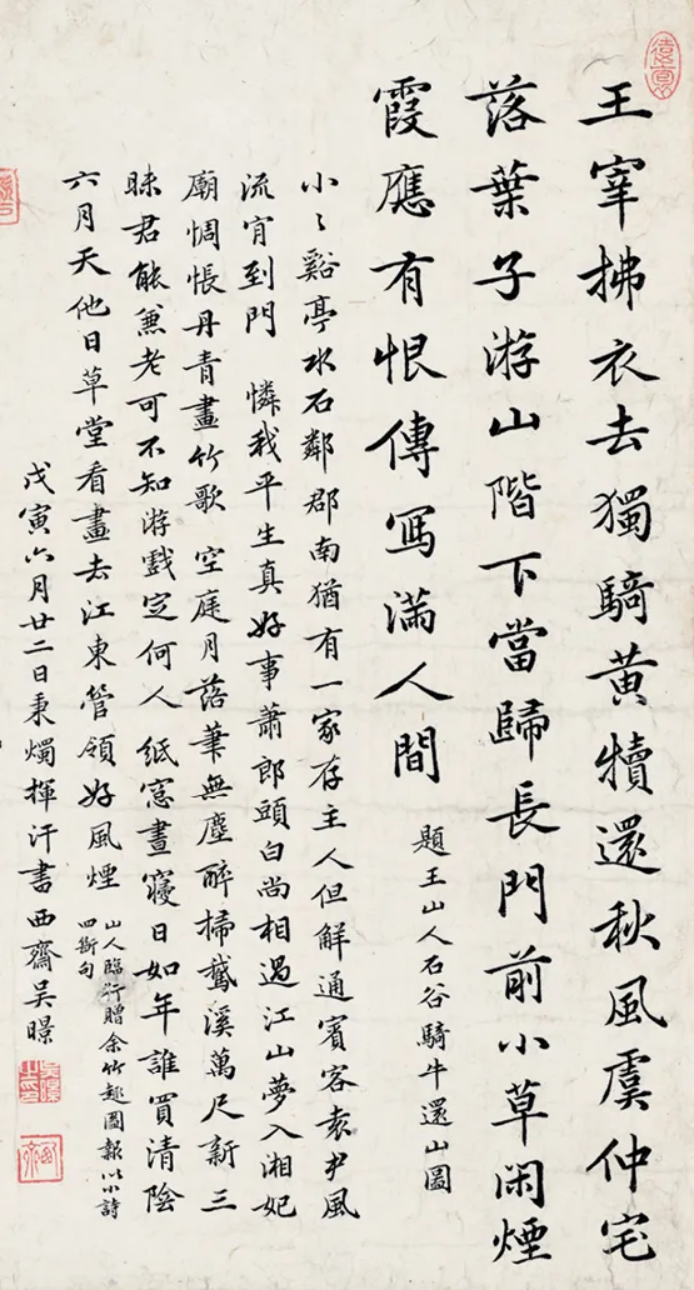 王宰拂衣去獨騎黄犢還秋風虞仲宅
落葉子游山階下當歸長門前小草閑煙
霞應有恨傳寫滿人間
題王山人石谷騎牛還山圖
小〻谿亭水石鄰郡南猶有一家存主人但解通賓客袁尹風
流肎到門 憐我平生真好事蕭郎頭白尚相過江山夢入湘妃
廟惆悵丹青畫竹歌 空庭月落筆無塵醉掃鵞溪萬尺新三
昧君能兼老可不知游戲定何人 紙窓晝寢日如年誰買清陰
六月天他日草堂看畫去江東管領好風煙
山人臨行贈余竹趣圖報以小詩
四斷句
戊寅六月廿二日秉燭揮汗書西齋吳暻
吳暻之印